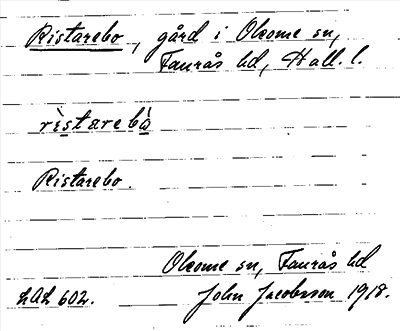 Ristarebo, gård i Okome sn,
Faurås hd, Hall. l.
rìstarebà
Ristarebo.
Okome sn, Faurås hd
LAL 602. John Jacobsson 1918.